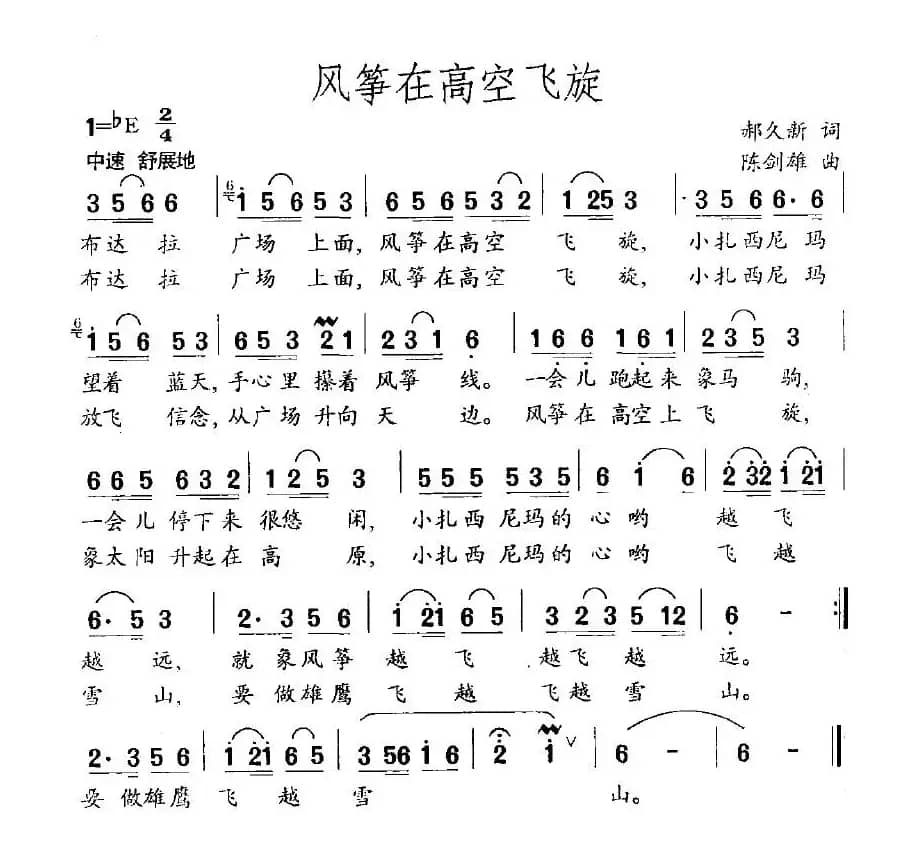 风筝在高空飞旋
1=♭E 2/4
郝久新 词
中速 舒展地
陈剑雄 曲
3 5 6 6 6 | 6 1 5 6 5 3 | 6 5 6 5 3 2 | 1 2 5 3 | 3 5 6 6· 6
布达 拉 广场 上面, 风筝在高空 飞 旋, 小扎西尼玛
布达 拉 广场 上面, 风筝在高空 飞 旋, 小扎西尼玛
6 1 5 6 5 3 | 6 5 3 2 1 | 2 3 1 6 | 1 6 6 1 6 1 | 2 3 5 3
望着 蓝天, 手心里 攥着 风筝 线。 一会儿 跑起来 象马 驹,
放飞 信念, 从广场 升向 天 边。 风筝在 高空上飞 旋,
6 6 5 6 3 2 | 1 2 5 3 | 5 5 5 5 3 5 | 6 1 6 | 2 3 2 1 2 1
一会儿 停下来 很悠 闲, 小扎西 尼玛的 心 哟 越 飞
象太阳 升起在 高 原, 小扎西 尼玛的 心 哟 飞 越
6· 5 3 | 2· 3 5 6 | 1 2 1 6 5 | 3 2 3 5 1 2 | 6 - :|
越 远, 就 象风筝 越 飞 越飞 越 远。
雪 山, 要 做雄鹰 飞 越 飞越 雪 山。
2· 3 5 6 | 1 2 1 6 5 | 3 5 6 1 6 | 2 1 ∨ | 6 - | 6 - ‖
要 做雄鹰 飞 越 雪 山。